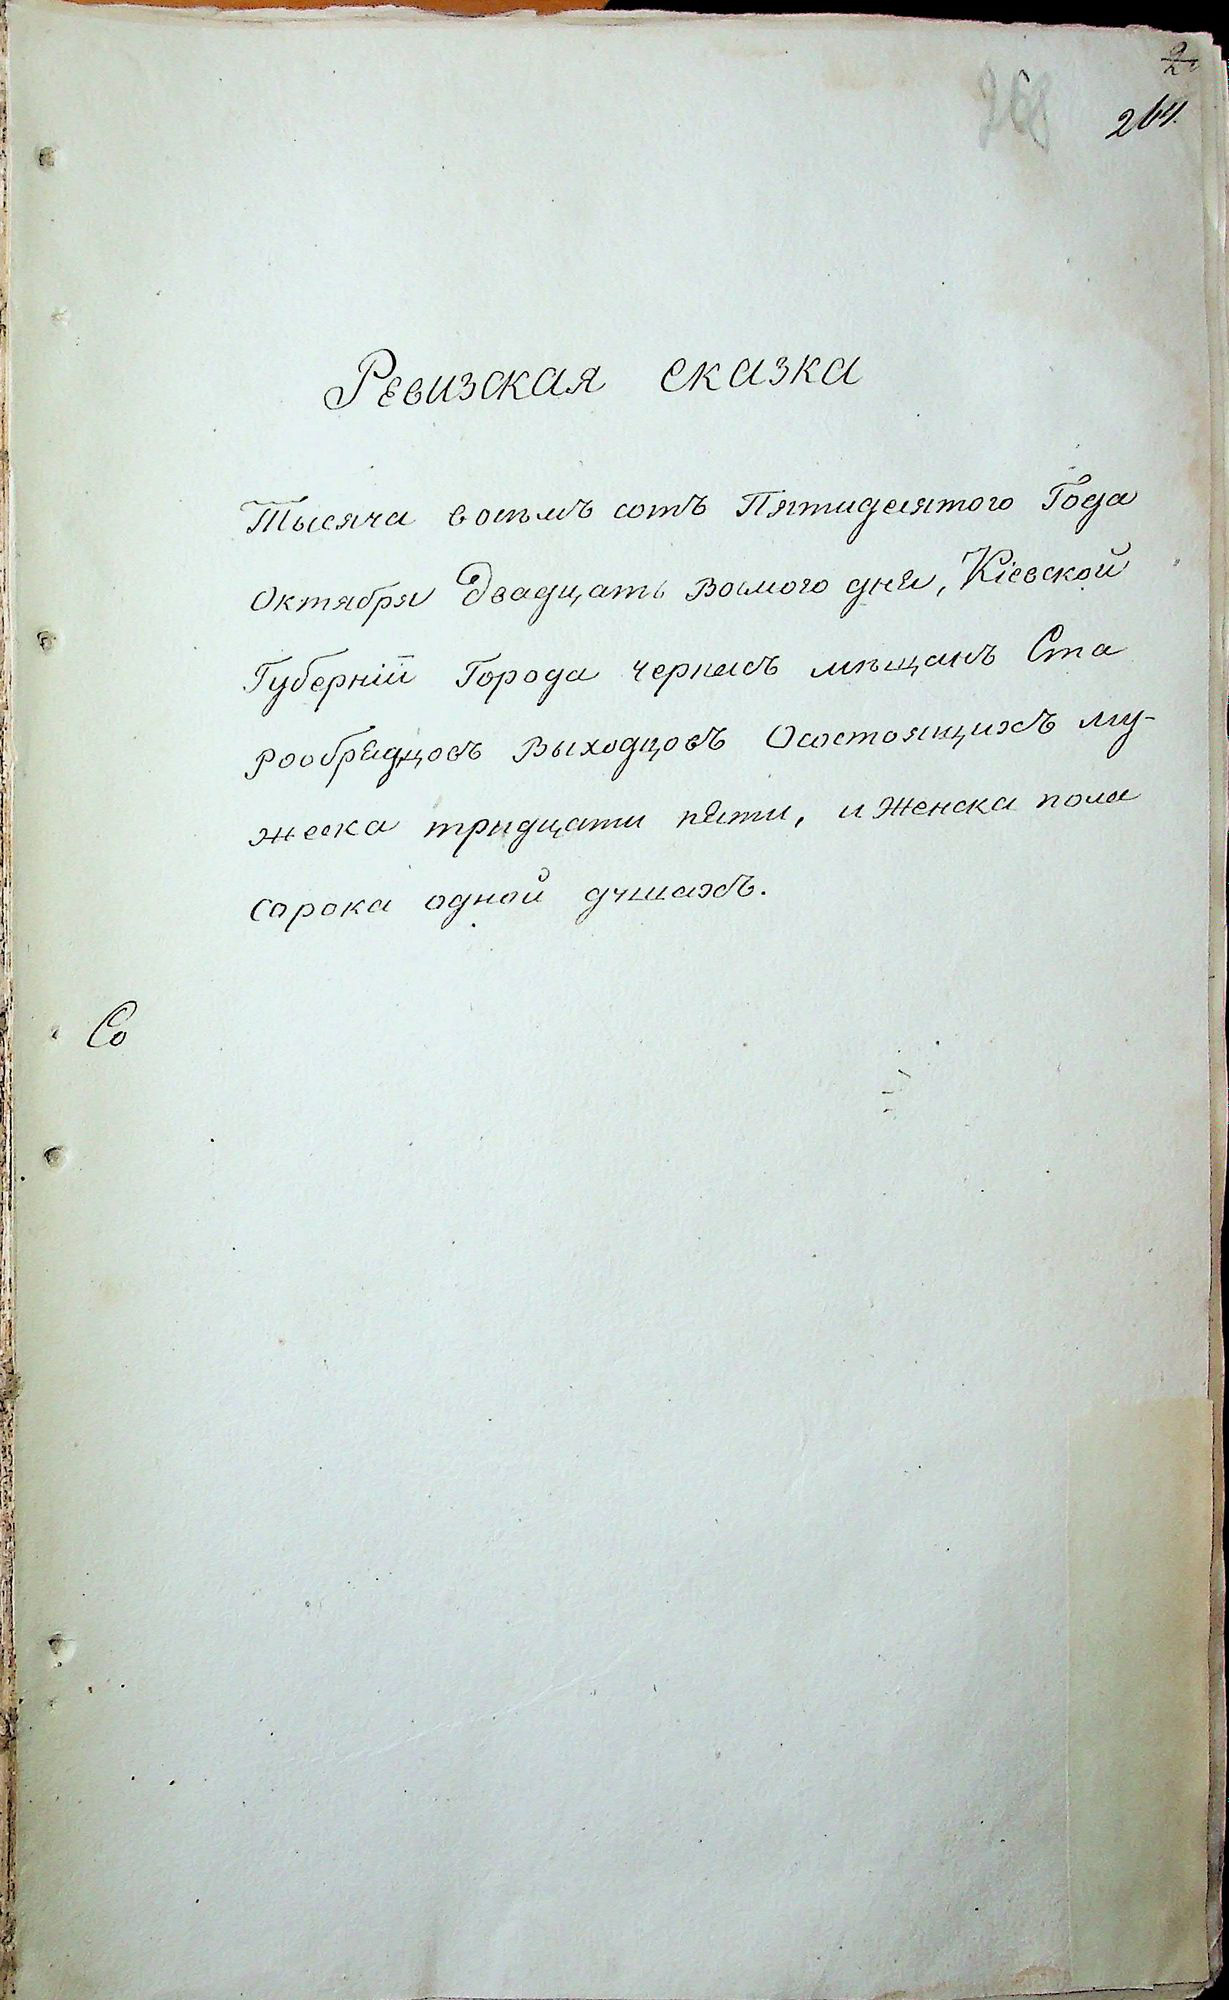 2
268
264.
Ревизская сказка
Тысяча восемъ сотъ Пятидесятого Года
Октября Двадцать Восмого дня, Кіевской
Губерніи Города мѣщанъ Ста
рообрядцовъ Выходцовъ Осостоящихъ му-
жеска тридцати пяти, и Женска пола
сорока одной душахъ.
Со